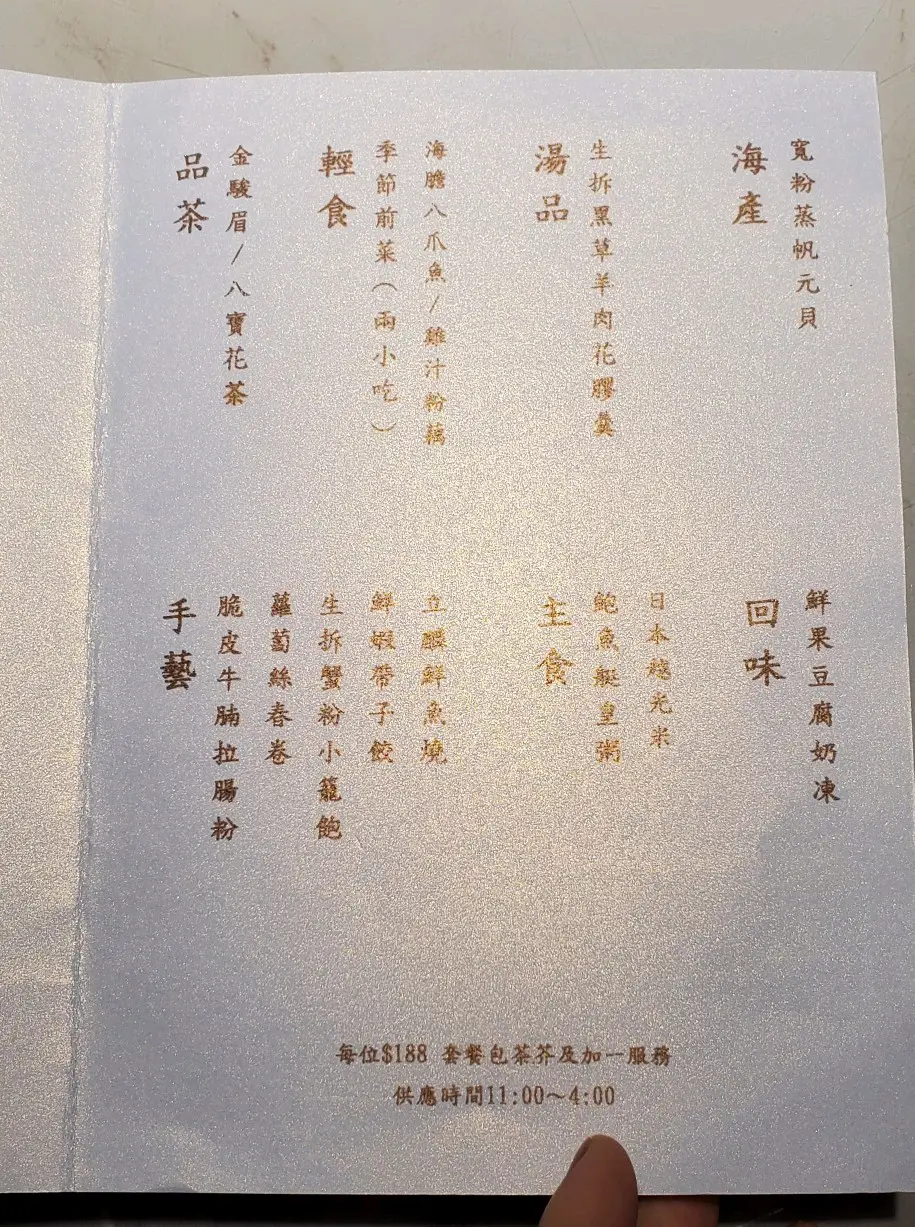 品茶
金駿眉/八寶花茶
輕食
季節前菜(兩小吃)
海膽八爪魚/雞汁粉藕
湯品
生拆黑草羊肉花膠羹
海產
寬粉蒸帆元貝
手藝
脆皮牛腩拉腸粉
蘿蔔絲春卷
生拆蟹粉小籠飽
鮮蝦帶子餃
立鱗鮮魚燒
主食
鮑魚艇皇粥
日本越光米
回味
鮮果豆腐奶凍
每位$188 套餐包茶芥及加一服務
供應時間11:00～4:00